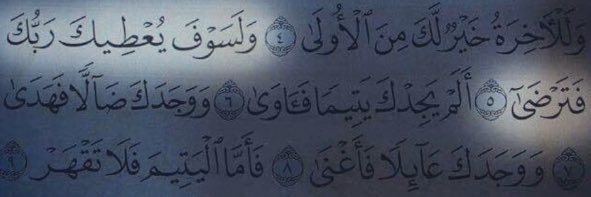 وَلَلْـَٔاخِرَةُ خَيْرٌ لَّكَ مِنَ ٱلْأُولَىٰ ٤ وَلَسَوْفَ يُعْطِيكَ رَبُّكَ
فَتَرْضَىٰٓ ٥ أَلَمْ يَجِدْكَ يَتِيمًا فَـَٔاوَىٰ ٦ وَوَجَدَكَ ضَآلًّا فَهَدَىٰ
٧ وَوَجَدَكَ عَآئِلًا فَأَغْنَىٰ ٨ فَأَمَّا ٱلْيَتِيمَ فَلَا تَقْهَرْ ٩